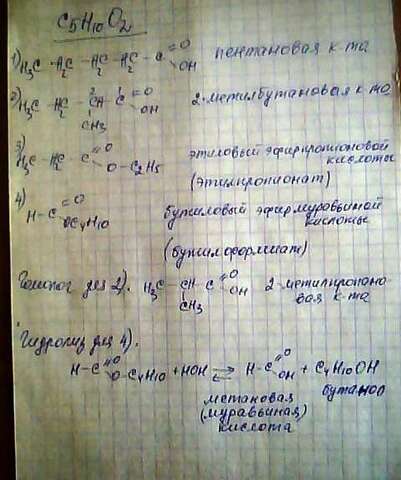 C5H10O2
1) H3C - H2C - H2C - H2C - C =O OH пентановая к-та
2) H3C - H2C - CH - C =O OH 2-метилбутановая к-та
CH3
3) H3C - H2C - C =O O - C2H5 этиловый эфир пропионовой
кислоты
(этилпропионат)
4) H - C =O OC4H10 бутиловый эфир муравьиной
кислоты
(бутилформиат)
Гомолог для 2). H3C - CH - C =O OH 2-метилпропано
CH3 вая к-та
Гидролиз для 4).
H - C =O O - C4H10 + HOH ⇄ H - C =O OH + C4H10OH
метановая бутанол
(муравьиная)
кислота